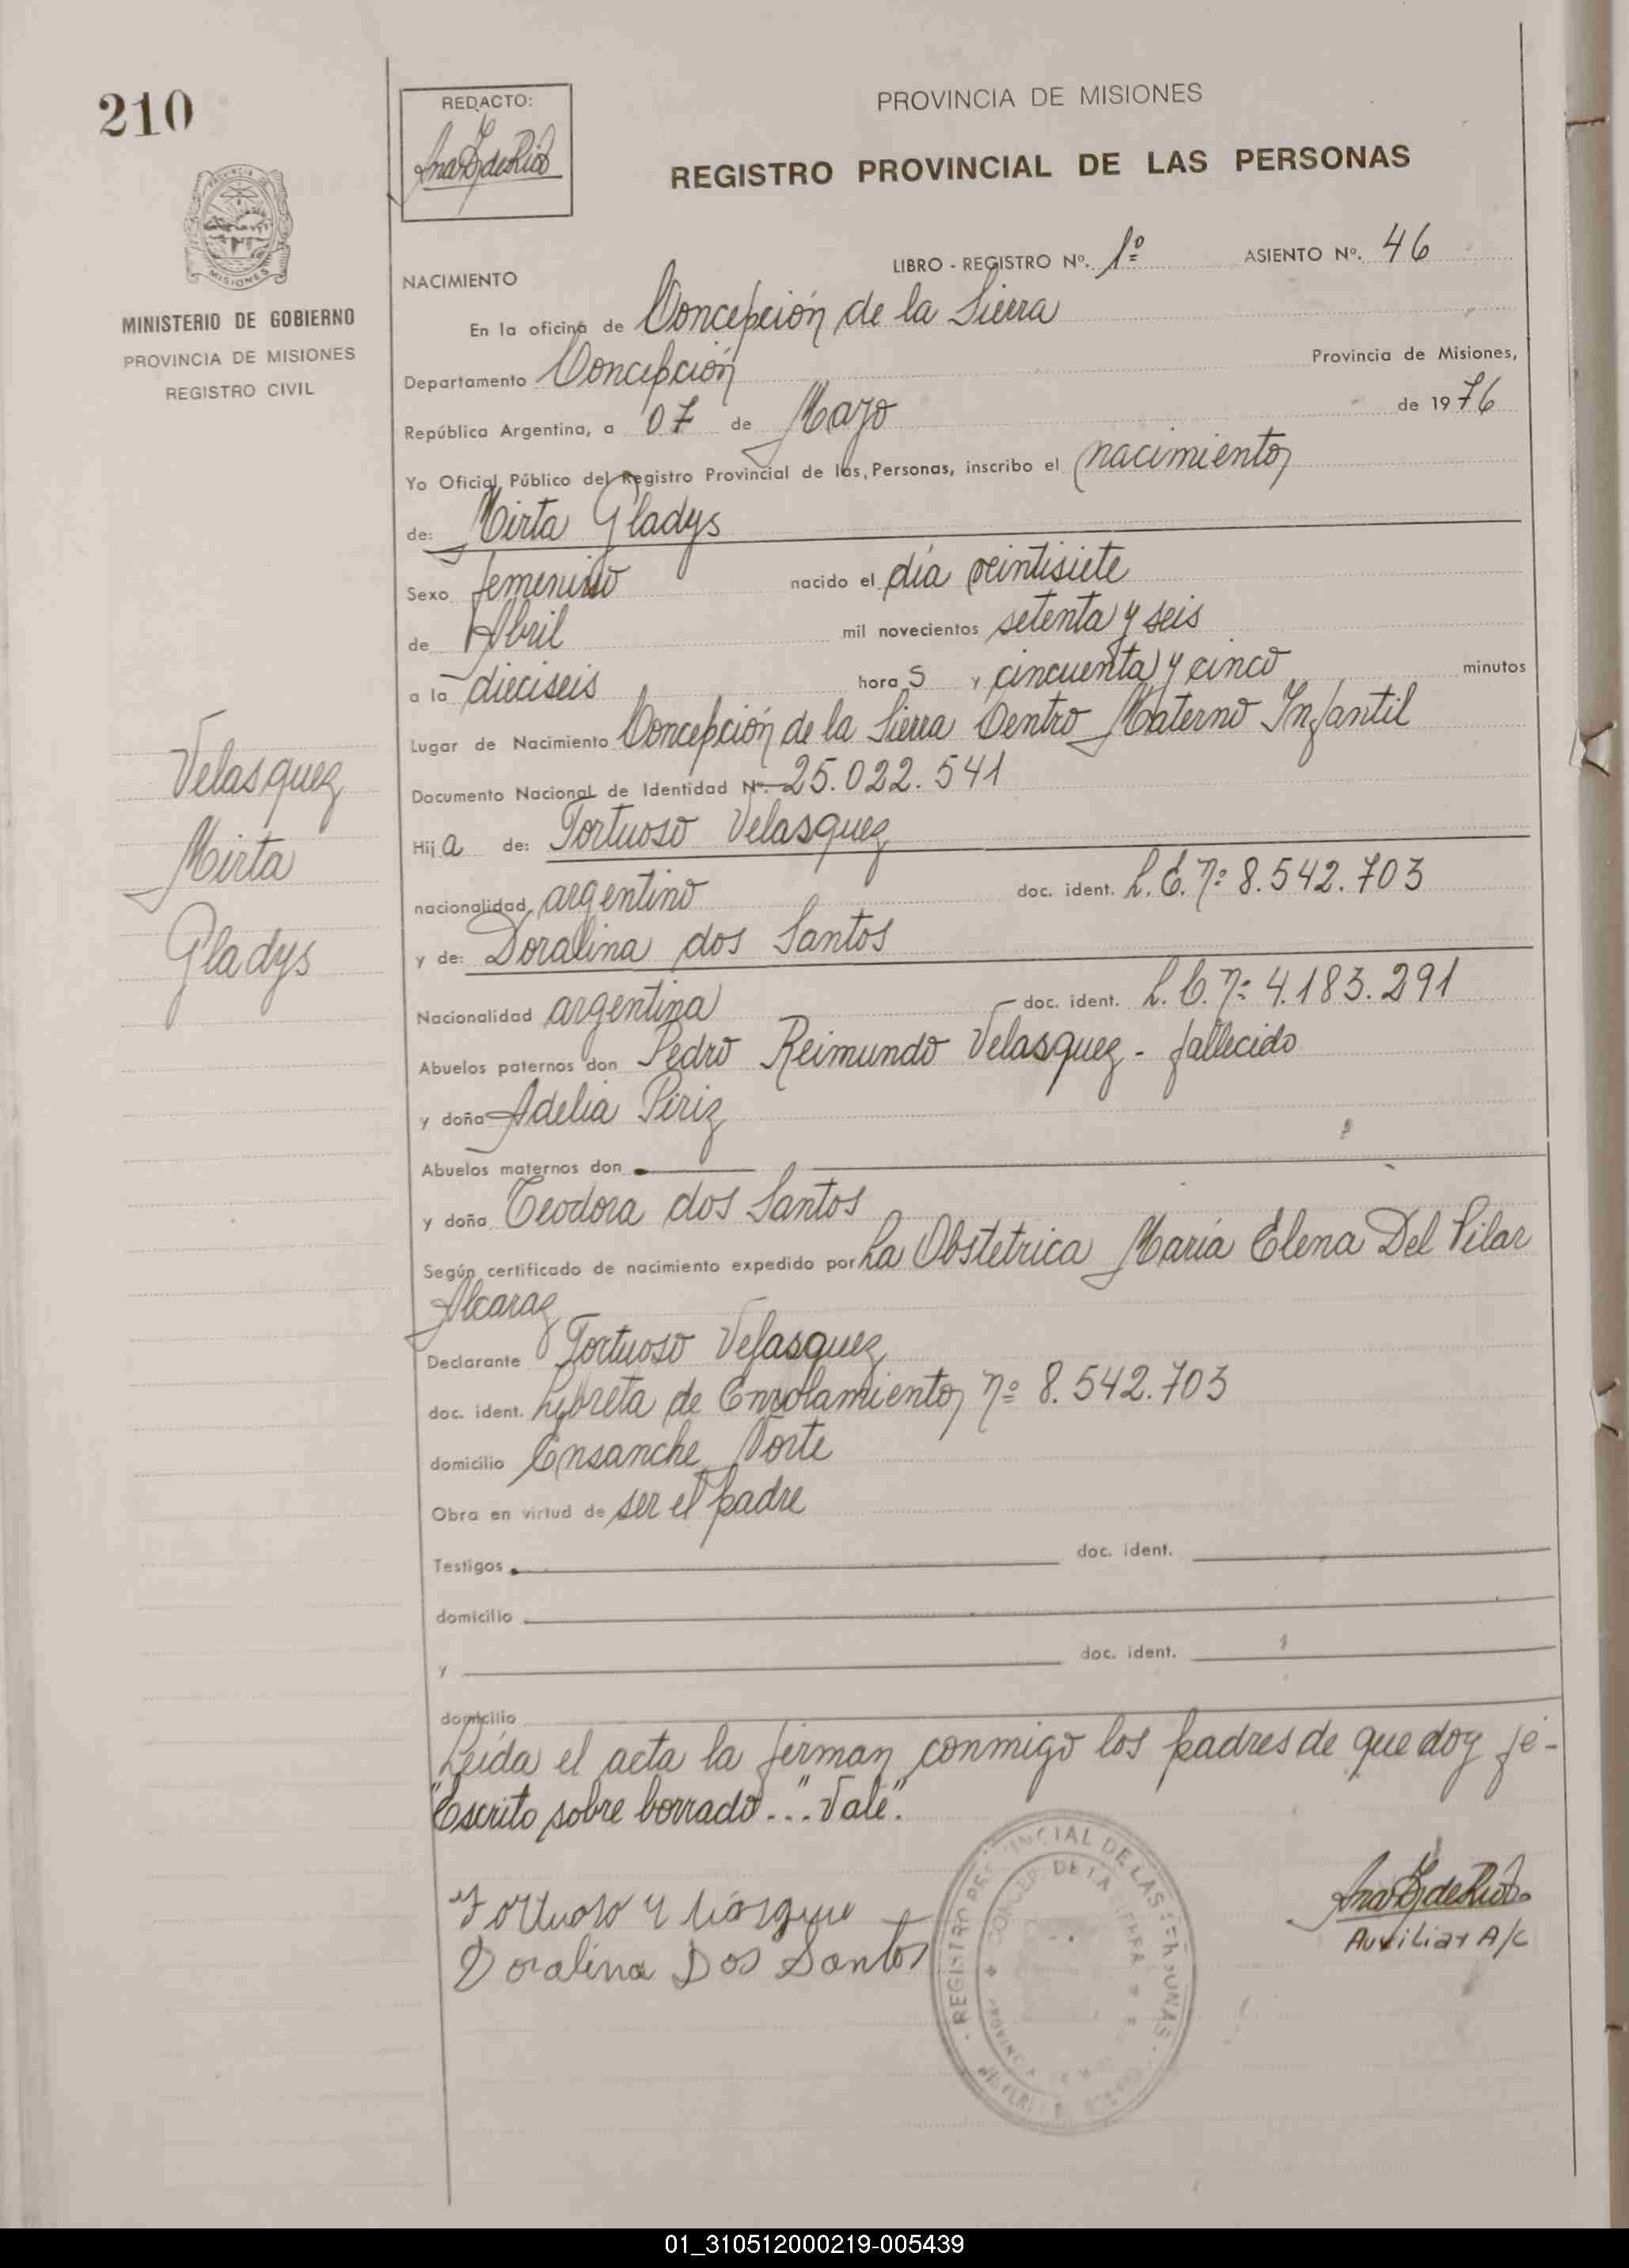 210
REDACTO:
PROVINCIA DE MISIONES
REGISTRO PROVINCIAL DE LAS PERSONAS
MISIONES
MINISTERIO DE GOBIERNO
PROVINCIA DE MISIONES
REGISTRO CIVIL
LIBRO - REGISTRO Nº. 1º ASIENTO Nº. 46
NACIMIENTO
En la oficina de Concepción de la Sierra
Departamento Concepción Provincia de Misiones,
República Argentina, a 07 de Mayo de 1976
Yo Oficial Público del Registro Provincial de las Personas, inscribo el nacimiento
de: Mirta Gladys
Sexo femenino nacido el día veintisiete
de Abril mil novecientos setenta y seis
a la dieciseis hora s y cincuenta y cinco minutos
Lugar de Nacimiento Concepción de la Sierra Centro Materno Infantil
Documento Nacional de Identidad Nº. 25.022.541
Hij a de: Tortuoso Velasquez
nacionalidad argentino doc. ident. L.E. nº 8.542.703
y de: Doralina dos Santos
Nacionalidad argentina doc. ident. L.C. nº 4.183.291
Abuelos paternos don Pedro Reimundo Velasquez - fallecido
y doña Adelia Piriz
Abuelos maternos don
y doña Teodora dos Santos
Según certificado de nacimiento expedido por La Obstetrica María Elena Del Pilar
Alcaraz
Declarante Tortuoso Velasquez
doc. ident. Libreta de Enrolamiento nº 8.542.703
domicilio Ensanche Norte
Obra en virtud de ser el padre
Testigos doc. ident.
domicilio
y doc. ident.
domicilio
Leída el acta la firman conmigo los padres de que doy fé-
"Escrito sobre borrado..." Vale".
Velasquez
Mirta
Gladys
Doralina Dos Santos
REGISTRO PROVINCIAL DE LAS PERSONAS
Auxiliar A/C
01_310512000219-005439